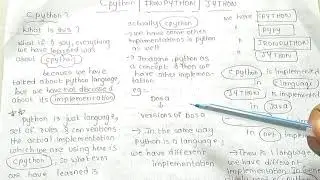 Cpython | IRONPYTHON | JYTHON
Cpython?
What is this?
What if I say, everything
we have learned is
about cpython
because we have
talked about python language,
but we have not discussed
about its implementation
Python is just language,
set of rules & conventions
the actual implementation
which we are using here is
cpython, so what ever
are have learned is
actually cpython
we have some other
implementations in python as
well
→ Imagine, python as
a concept & then we
have other implemen-
tations
eg =
Dosa
↓
versions of Dosa
→ In the same way
Python is a language
we have different
implementation
we have CPYTHON
Pypy
IRONPYTHON
JYTHON
Cpython is implemented
in C language
JYTHON is implemented
in Java
is implemented
in .net
→ There is 1 language
we have different